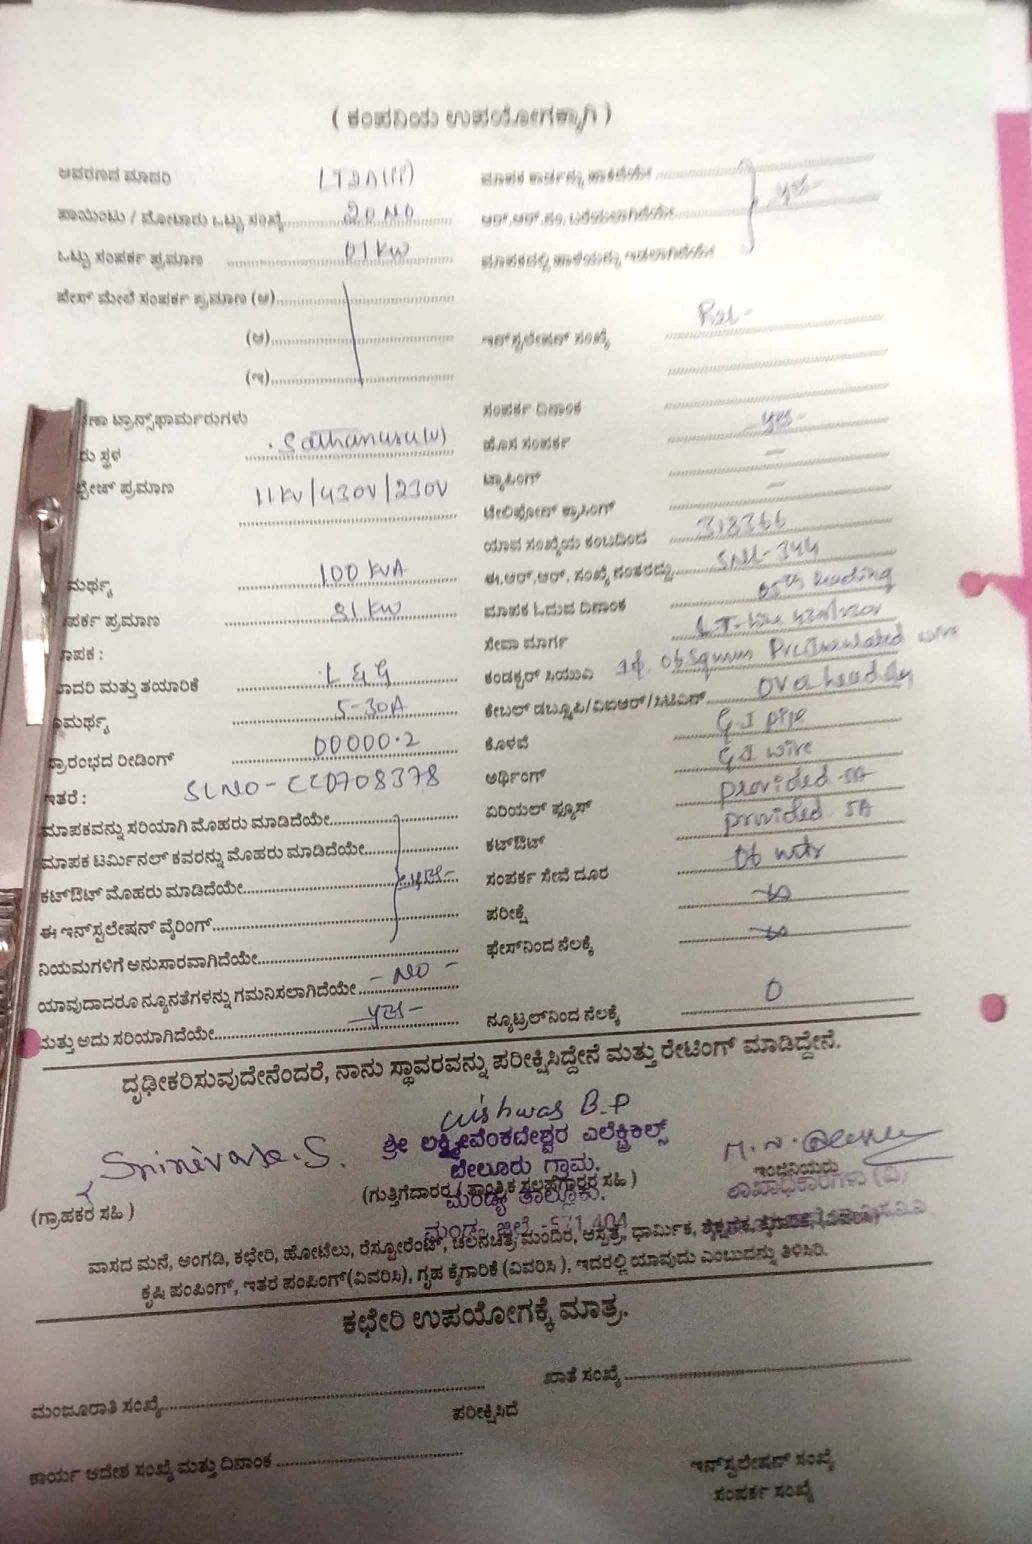 ( ಕಂಪನಿಯ ಉಪಯೋಗಕ್ಕಾಗಿ )
ಆವರಣದ ಮಾದರಿ LT2A(ii) ಮಾಪಕ ಕಾರ್ಡನ್ನು ಹಾಕಿದೆಯೇ
ಪಾಯಿಂಟು / ಮೋಟಾರು ಒಟ್ಟು ಸಂಖ್ಯೆ 20 NO ಆರ್.ಆರ್.ನಂ. ಬರೆಯಲಾಗಿದೆಯೇ yes
ಒಟ್ಟು ಸಂಪರ್ಕ ಪ್ರಮಾಣ 01 KW ಮಾಪಕದಲ್ಲಿ ಹಾಳೆಯನ್ನು ಇಡಲಾಗಿದೆಯೇ
ಫೇಸ್ ಮೇಲೆ ಸಂಪರ್ಕ ಪ್ರಮಾಣ (ಅ)
(ಆ) ಇನ್‌ಸ್ಟಲೇಷನ್ ಸಂಖ್ಯೆ
(ಇ)
ಟ್ರಾನ್ಸ್‌ಫಾರ್ಮರುಗಳು ಸಂಪರ್ಕ ದಿನಾಂಕ
ರು ಸ್ಥಳ Sathanuru(W) ಹೊಸ ಸಂಪರ್ಕ yes
ಪ್ರಮಾಣ 11KV/430V/230V ಟ್ಯಾಪಿಂಗ್ -
ಟೆಲಿಫೋನ್ ಕ್ರಾಸಿಂಗ್ -
ಯಾವ ಸಂಖ್ಯೆಯ ಕಂಬದಿಂದ 318366
ಮರ್ಥ್ಯ 100 KVA ಈ.ಆರ್.ಆರ್. ಸಂಖ್ಯೆ ನಂತರದ್ದು SNL-344
ಪರ್ಕ ಪ್ರಮಾಣ 81 KW ಮಾಪಕ ಓದುವ ದಿನಾಂಕ 05th Reading
ಾಪಕ : ಸೇವಾ ಮಾರ್ಗ LT-line
ಾದರಿ ಮತ್ತು ತಯಾರಿಕೆ L & G ಕಂಡಕ್ಟರ್ 1ф. 06 Sqmm wire
ಾಮರ್ಥ್ಯ 5-30A ಕೇಬಲ್ ಡಬ್ಲ್ಯೂಪಿ/ವಿಐಆರ್/ಸಿಟಿಎಸ್ Overhead
ಪ್ರಾರಂಭದ ರೀಡಿಂಗ್ 00000.2 ಕೊಳವೆ G.I pipe
ಇತರೆ : SLNO-CCD708378 ಅರ್ಥಿಂಗ್ GI wire
ಮಾಪಕವನ್ನು ಸರಿಯಾಗಿ ಮೊಹರು ಮಾಡಿದೆಯೇ ಏರಿಯಲ್ ಫ್ಯೂಸ್ provided 5A
ಮಾಪಕ ಟರ್ಮಿನಲ್ ಕವರನ್ನು ಮೊಹರು ಮಾಡಿದೆಯೇ ಕಟ್‌ಔಟ್ provided 5A
ಕಟ್‌ಔಟ್ ಮೊಹರು ಮಾಡಿದೆಯೇ yes ಸಂಪರ್ಕ ಸೇವೆ ದೂರ 06 mtr
ಈ ಇನ್‌ಸ್ಟಲೇಷನ್ ವೈರಿಂಗ್ ಪರೀಕ್ಷೆ ∞
ನಿಯಮಗಳಿಗೆ ಅನುಸಾರವಾಗಿದೆಯೇ ಫೇಸ್‌ನಿಂದ ನೆಲಕ್ಕೆ ∞
ಯಾವುದಾದರೂ ನ್ಯೂನತೆಗಳನ್ನು ಗಮನಿಸಲಾಗಿದೆಯೇ - NO -
ಮತ್ತು ಅದು ಸರಿಯಾಗಿದೆಯೇ - yes - ನ್ಯೂಟ್ರಲ್‌ನಿಂದ ನೆಲಕ್ಕೆ 0
ದೃಢೀಕರಿಸುವುದೇನೆಂದರೆ, ನಾನು ಸ್ಥಾವರವನ್ನು ಪರೀಕ್ಷಿಸಿದ್ದೇನೆ ಮತ್ತು ರೇಟಿಂಗ್ ಮಾಡಿದ್ದೇನೆ.
Vishwas B.P
ಶ್ರೀ ಲಕ್ಷ್ಮೀವೆಂಕಟೇಶ್ವರ ಎಲೆಕ್ಟ್ರಿಕಲ್ಸ್
ಬೇಲೂರು ಗ್ರಾಮ, ಇಂಜಿನಿಯರು
(ಗ್ರಾಹಕರ ಸಹಿ ) (ಗುತ್ತಿಗೆದಾರರ / ತಾಂತ್ರಿಕ ಸಲಹೆಗಾರರ ಸಹಿ ) ಶಾಖಾಧಿಕಾರಿಗಳು (ವಿ)
ಮಂಡ್ಯ ತಾಲ್ಲೂಕು,
ಮಂಡ್ಯ ಜಿಲ್ಲೆ -571 404
ವಾಸದ ಮನೆ, ಅಂಗಡಿ, ಕಛೇರಿ, ಹೋಟೆಲು, ರೆಸ್ಟೋರೆಂಟ್, ಚಲನಚಿತ್ರ ಮಂದಿರ, ಆಸ್ಪತ್ರೆ, ಧಾರ್ಮಿಕ, ಶೈಕ್ಷಣಿಕ, ಕೈಗಾರಿಕೆ, (ವಿವರಿಸಿ)
ಕೃಷಿ ಪಂಪಿಂಗ್, ಇತರ ಪಂಪಿಂಗ್(ವಿವರಿಸಿ), ಗೃಹ ಕೈಗಾರಿಕೆ (ವಿವರಿಸಿ ), ಇದರಲ್ಲಿ ಯಾವುದು ಎಂಬುದನ್ನು ತಿಳಿಸಿರಿ.
ಕಛೇರಿ ಉಪಯೋಗಕ್ಕೆ ಮಾತ್ರ.
ಮಂಜೂರಾತಿ ಸಂಖ್ಯೆ ಖಾತೆ ಸಂಖ್ಯೆ
ಪರೀಕ್ಷಿಸಿದೆ
ಕಾರ್ಯ ಆದೇಶ ಸಂಖ್ಯೆ ಮತ್ತು ದಿನಾಂಕ ಇನ್‌ಸ್ಟಲೇಷನ್ ಸಂಖ್ಯೆ
ಸಂಪರ್ಕ ಸಂಖ್ಯೆ